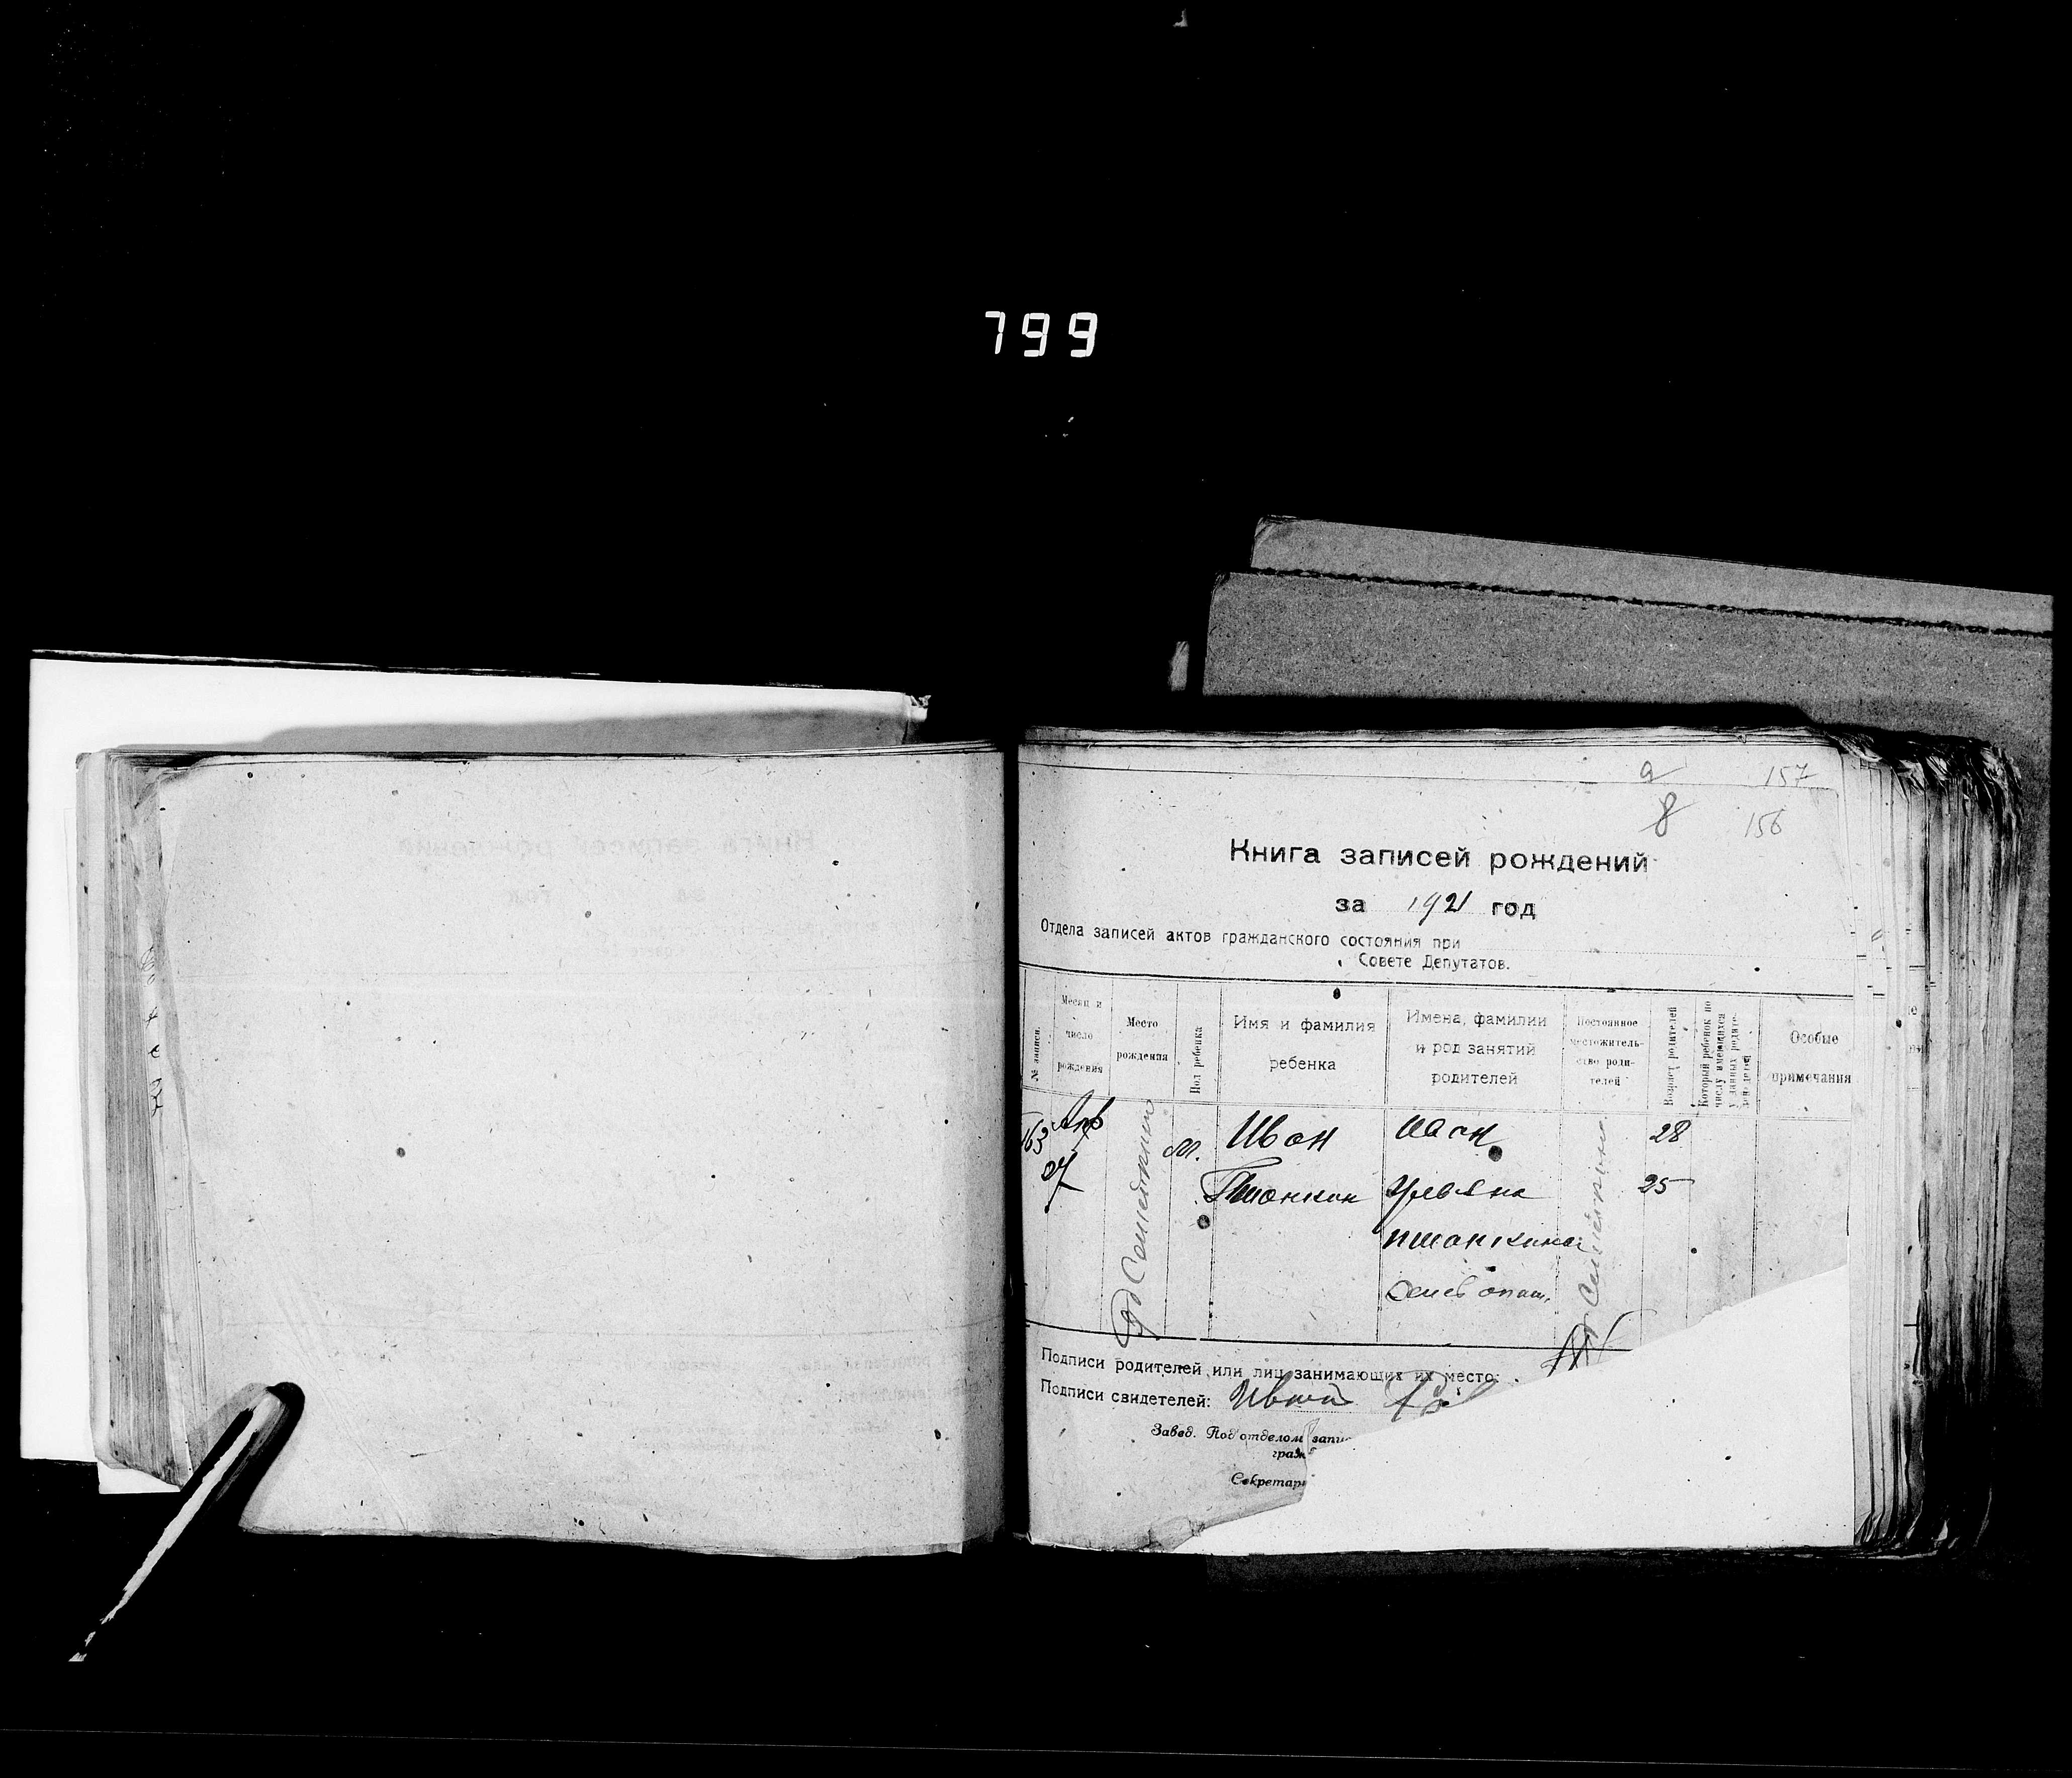 799
157
8
156
Книга записей рождений
за 1921 год
Отдела записей актов гражданского состояния при
Совете Депутатов.
№ записи.
Месяц и число рождения
Место рождения
Пол ребенка
Имя и фамилия ребенка
Имена, фамилии и род занятий родителей
Постоянное местожитель-ство роди-телей
Возраст родителей
Который ребенок по числу имеющихся у данных родите-лей детей
Особые примечания
163
27
м.
Иван
Пшонкин
Иван
Ульяна
пшонкина
28
25
Подписи родителей или лиц занимающих их место:
Подписи свидетелей:
Завед. Подотделом запис
граж
Секретарь